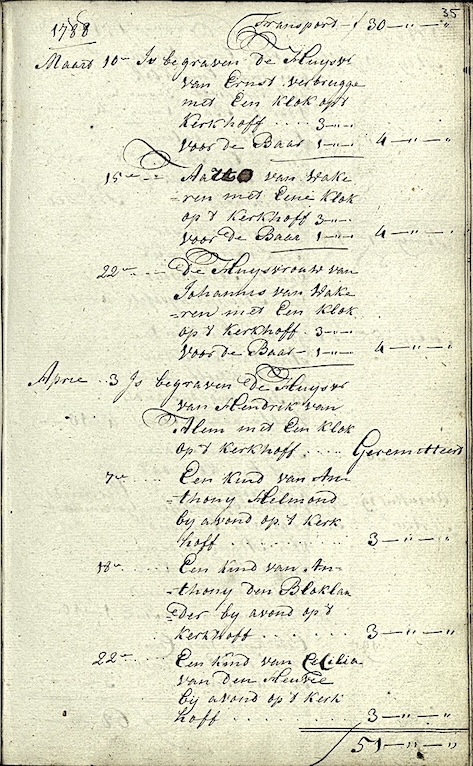 35
1788 Transport - f 30 - " - "
Maart 10 - Is begraven de Huysvr
van Ernst verbrugge
met Een klok op't
Kerkhoff .... 3 - " - "
voor de Baar 1 - " - " 4 - " - "
15 - - Aartto van Wake
-ren met Eene klok
op't Kerkhoff 3 - " - "
voor de Baar 1 - " - " 4 - " - "
22 - .... de Huysvrouw van
Johannis van Wake
-ren met Een klok
op't Kerkhoff . 3 - " - "
voor de Baar - 1 - " - " 4 - " - "
April . 3 Is begraven de Huysvr
van Hendrik van
Alem met Een klok
op't Kerkhoff .... Geremitteerd
7 - .... Een kind van An-
-thony Helmond
by avond op't Kerk
hoff .......... 3 - " - "
18 - .... Een kind van An-
-thony den Bloklan
-der by avond op't
Kerkhoff ....... 3 - " - "
22 - .... Een kind van Cecilia
van den Heuvel
bij avond op't Kerk
hoff .......... 3 - " - "
f 51 - " - "